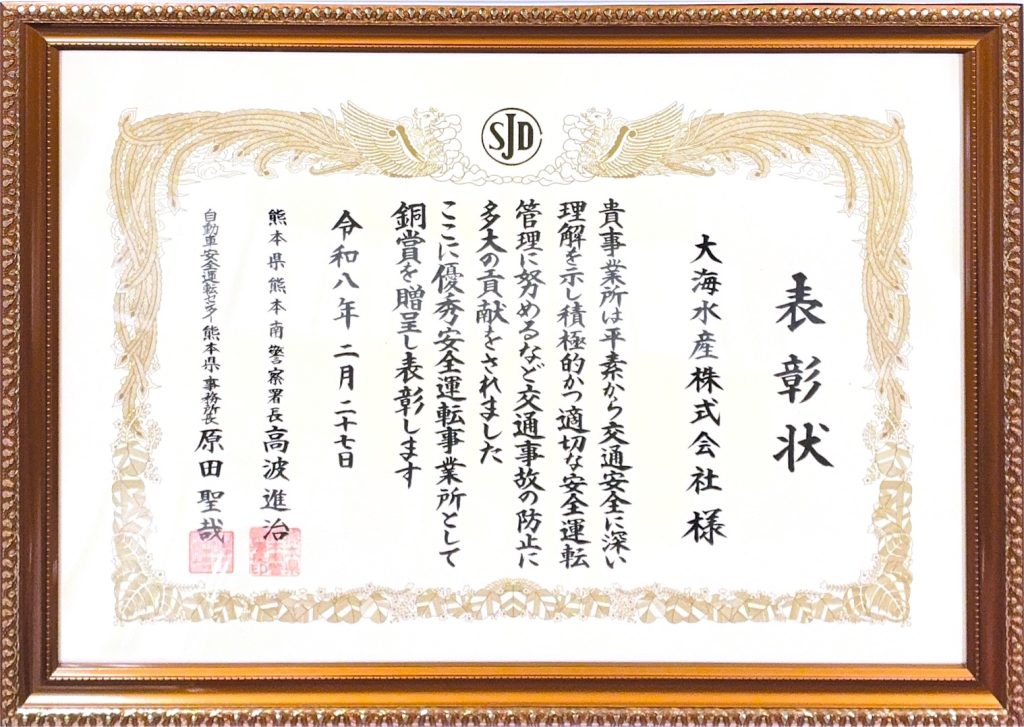 SJD
表彰状
大海水産株式会社様
貴事業所は平素から交通安全に深い
理解を示し積極的かつ適切な安全運転
管理に努めるなど交通事故の防止に
多大の貢献をされました
ここに優秀安全運転事業所として
銅賞を贈呈し表彰します
令和八年 二月 二十七日
熊本県熊本南警察署長 高波進治
自動車安全運転センター熊本県事務所長 原田聖哉